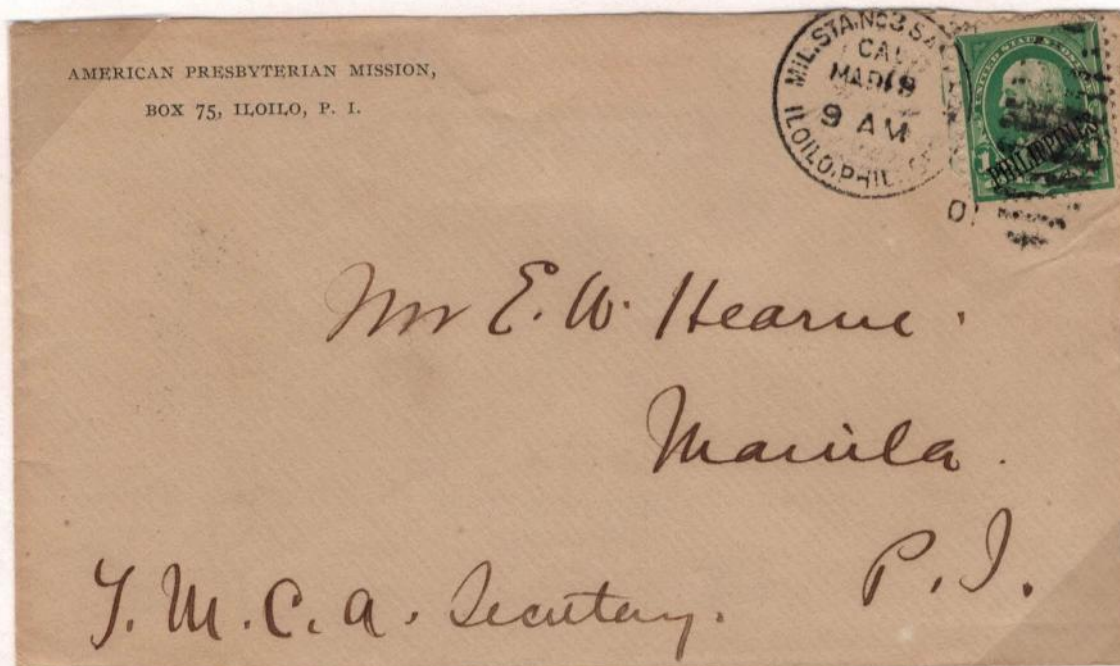 AMERICAN PRESBYTERIAN MISSION,
BOX 75, ILOILO, P. I.
MIL. STA. NO 3 SA
CAL
MAR 18
9 AM
ILOILO, PHIL.
UNITED STATES
1 1
PHILIPPINES
Mr E. W. Hearne.
Manila.
P. I.
Y. M. C. A. Secretary.